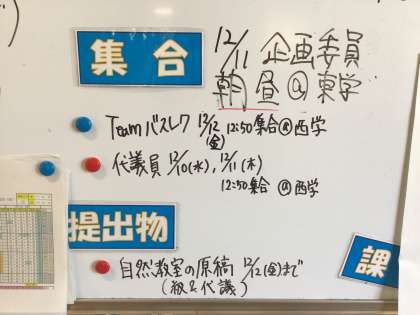 集合
12/11 企画委員
朝昼@東学
Teamバスレク 12/12(金) 12:50集合@西学
代議員 12/10(水), 12/11(木)
12:50集合 @西学
提出物
自然教室の原稿 12/12(金)まで
(級&代議)
課